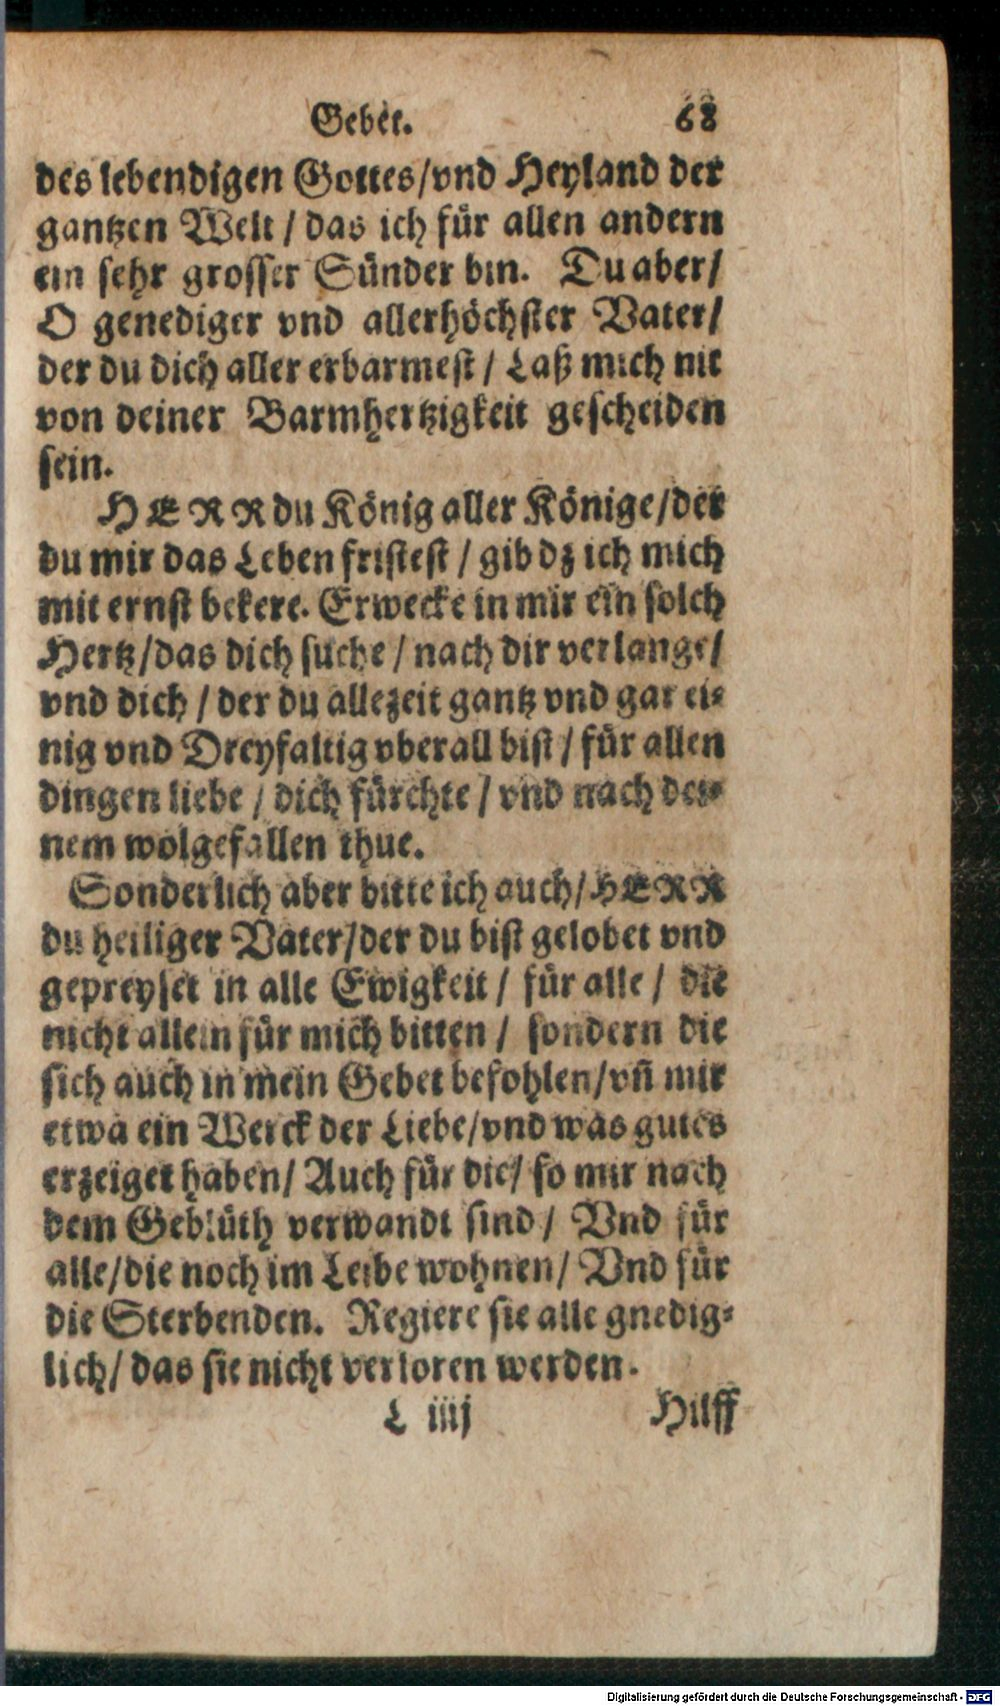 Gebet. 68
des lebendigen Gottes/vnd Heyland der
gantzen Welt / das ich für allen andern
ein sehr grosser Sünder bin. Du aber/
O genediger vnd allerhöchster Vater/
der du dich aller erbarmest / Laß mich nit
von deiner Barmhertzigkeit gescheiden
sein.
HERR du König aller Könige/der
du mir das Leben fristest / gib dz ich mich
mit ernst bekere. Erwecke in mir ein solch
Hertz/das dich suche / nach dir verlange/
vnd dich / der du allezeit gantz vnd gar ei⸗
nig vnd Dreyfaltig vberall bist / für allen
dingen liebe / dich fürchte / vnd nach dei⸗
nem wolgefallen thue.
Sonderlich aber bitte ich auch/HERR
du heiliger Vater/der du bist gelobet vnd
gepreyset in alle Ewigkeit / für alle / die
nicht allein für mich bitten / sondern die
sich auch in mein Gebet befohlen/vñ mir
etwa ein Werck der Liebe/vnd was gutes
erzeiget haben/ Auch für die/ so mir nach
dem Geblüth verwandt sind / Vnd für
alle/die noch im Leibe wohnen/ Vnd für
die Sterbenden. Regiere sie alle gnedig⸗
lich/ das sie nicht verloren werden.
L iiij Hilff
Digitalisierung gefördert durch die Deutsche Forschungsgemeinschaft - DFG